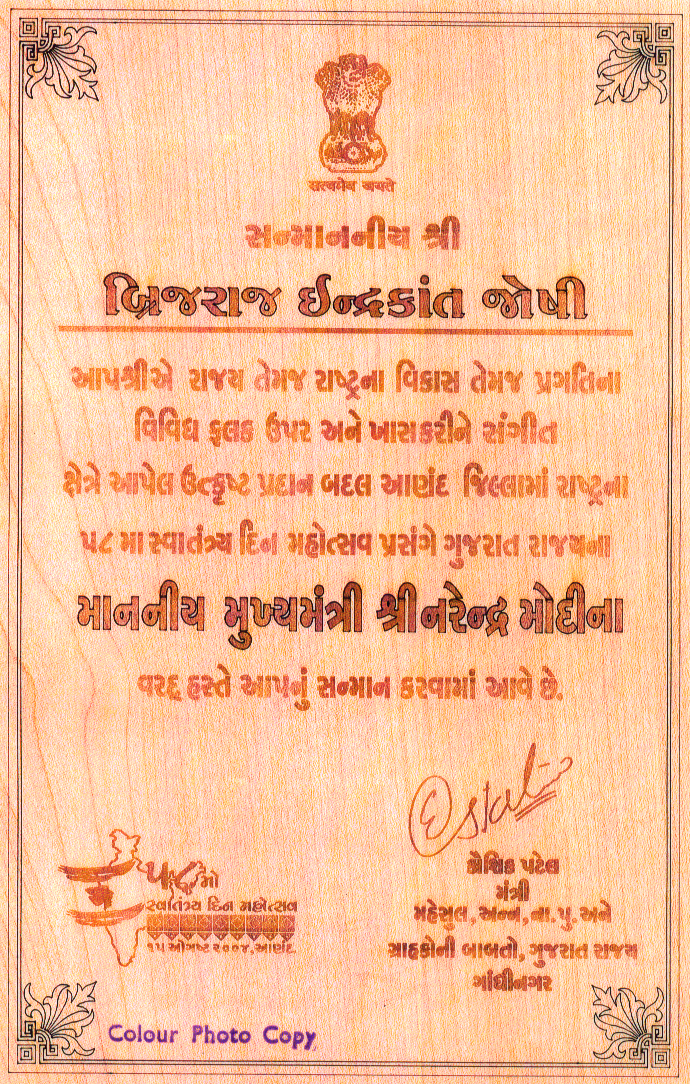 सत्यमेव जयते
સન્માનનીય શ્રી
બ્રિજરાજ ઈન્દ્રકાંત જોષી
આપશ્રીએ રાજય તેમજ રાષ્ટ્રના વિકાસ તેમજ પ્રગતિના
વિવિધ ફલક ઉપર અને ખાસકરીને સંગીત
ક્ષેત્રે આપેલ ઉત્કૃષ્ટ પ્રદાન બદલ આણંદ જિલ્લામાં રાષ્ટ્રના
૫૮ મા સ્વાતંત્ર્ય દિન મહોત્સવ પ્રસંગે ગુજરાત રાજયના
માનનીય મુખ્યમંત્રી શ્રી નરેન્દ્ર મોદીના
વરદ્ હસ્તે આપનું સન્માન કરવામાં આવે છે.
કૌશિક પટેલ
મંત્રી
મહેસુલ, અન્ન, ના.પુ. અને
ગ્રાહકોની બાબતો, ગુજરાત રાજય
ગાંધીનગર
૫૮મો
સ્વાતંત્ર્ય દિન મહોત્સવ
૧૫ ઓગષ્ટ ૨૦૦૪, આણંદ.
Colour Photo Copy